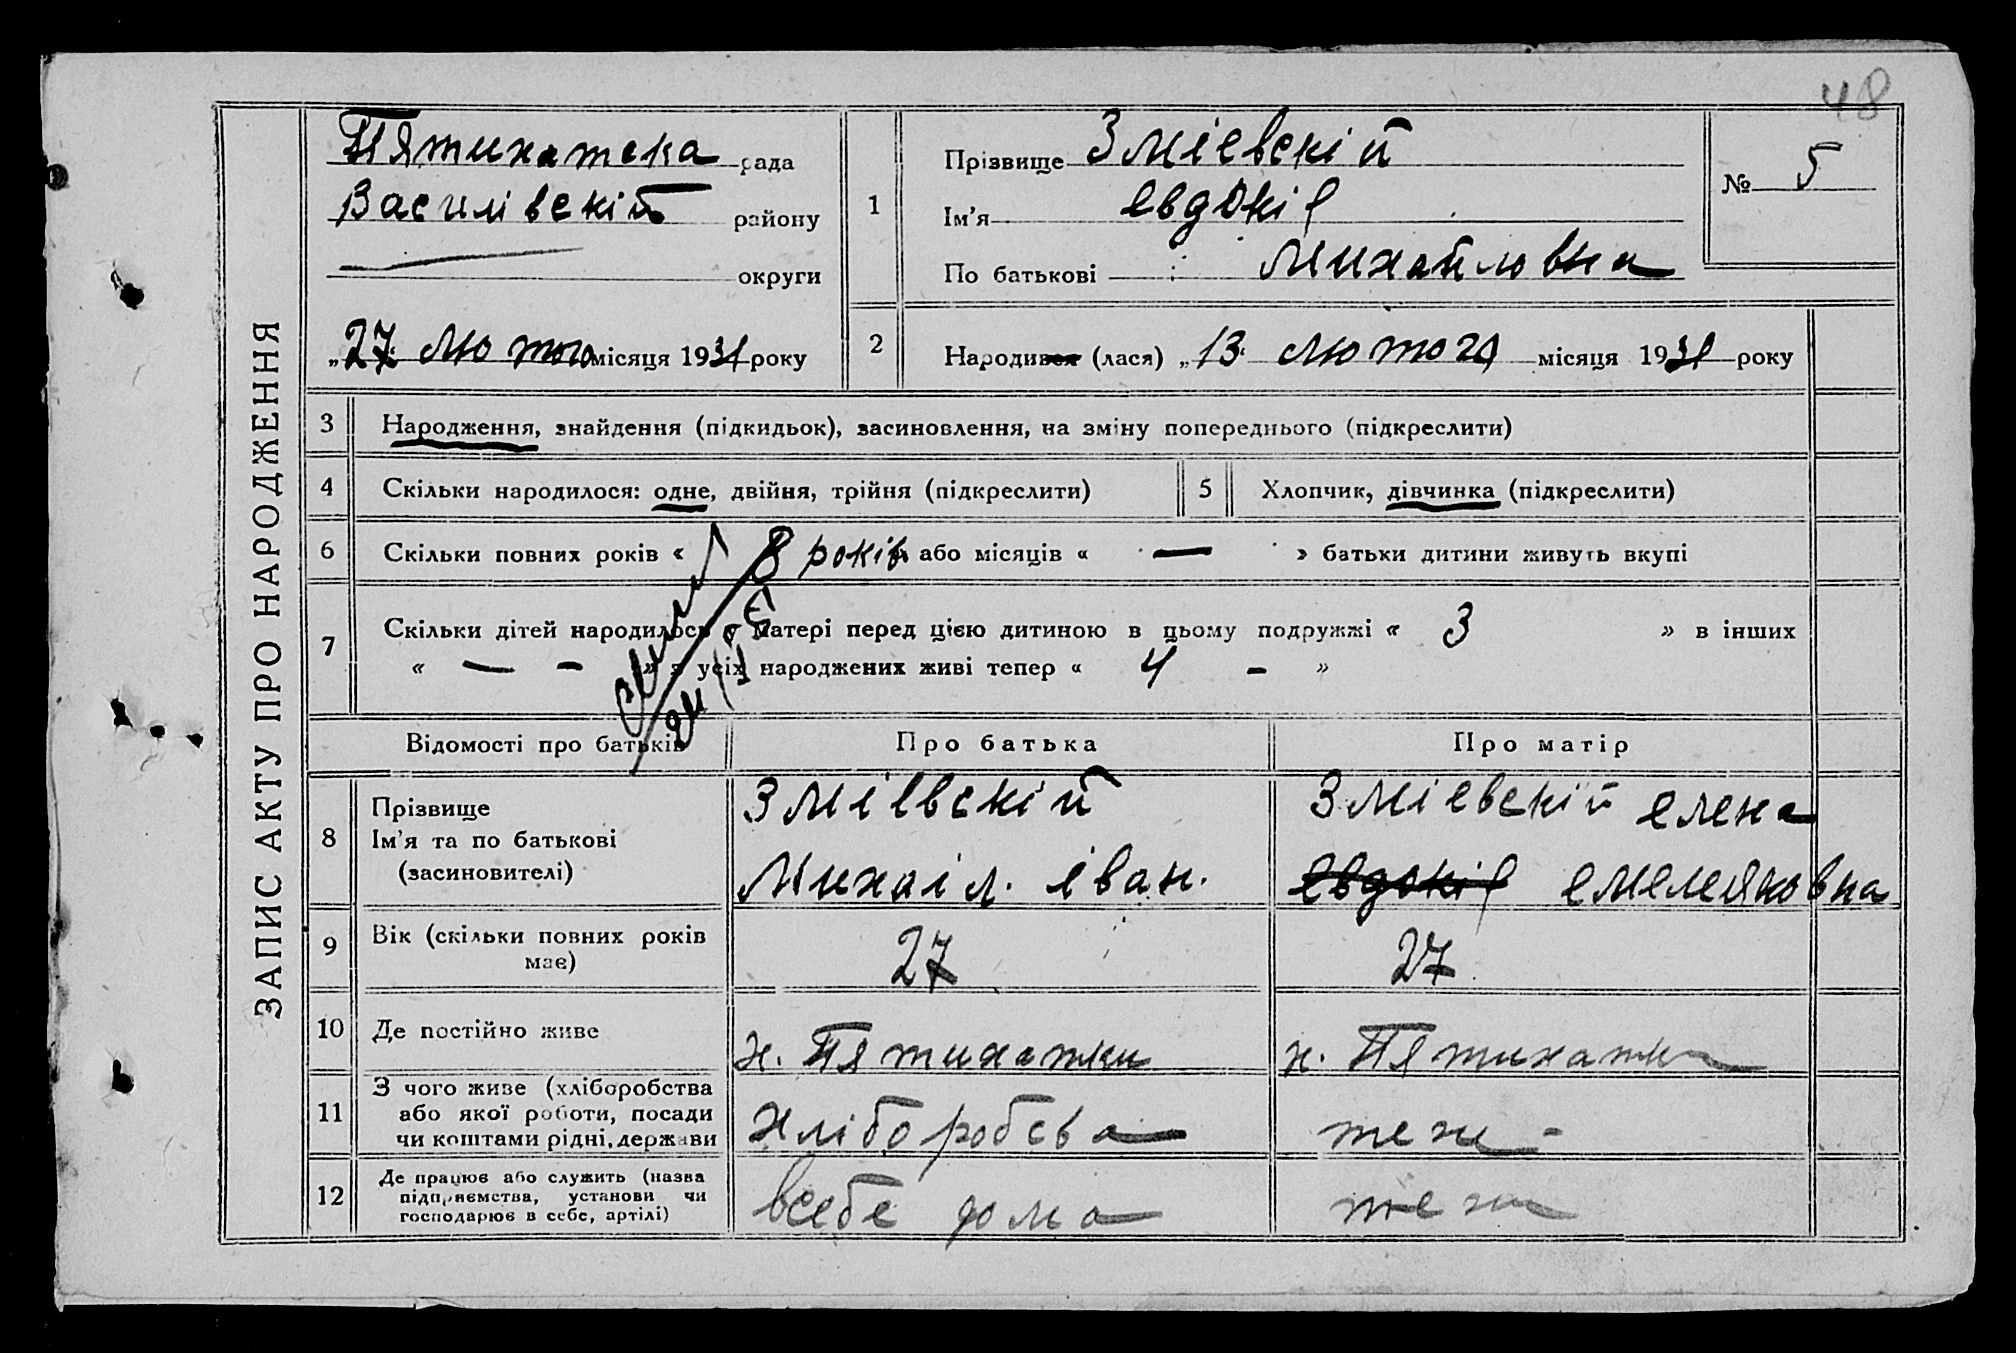 48
ЗАПИС АКТУ ПРО НАРОДЖЕННЯ
Пятихатска рада
Василівскій району
округи
„27" Лютого місяця 1931 року
1
Прізвище Зміевскій
Ім'я Евдокія
По батькові Михайловна
№ 5
2
Народився (лася) „13" Лютого місяця 1931 року
3 Народження, знайдення (підкидьок), засиновлення, на зміну попереднього (підкреслити)
4 Скільки народилося: одне, двійня, трійня (підкреслити) 5 Хлопчик, дівчинка (підкреслити)
6 Скільки повних років « 8 років або місяців « — » батьки дитини живуть вкупі
7 Скільки дітей народилось у матері перед цією дитиною в цьому подружжі « 3 » в інших
« — — » з усіх народжених живі тепер « 4 - »
Відомості про батьків Про батька Про матір
8
Прізвище
Ім'я та по батькові
(засиновителі)
Зміевскій
Михаіл. Іван.
Зміевскій елена
Евдокія емеляновна
9
Вік (скільки повних років
має)
27
27
10 Де постійно живе
х. Пятихатки
х. Пятихатки
11
З чого живе (хліборобства
або якої роботи, посади
чи коштами рідні, держави
Хліборобсва
теж -
12
Де працює або служить (назва
підприємства, установи чи
господарює в себе, артілі)
всебе дома
теж